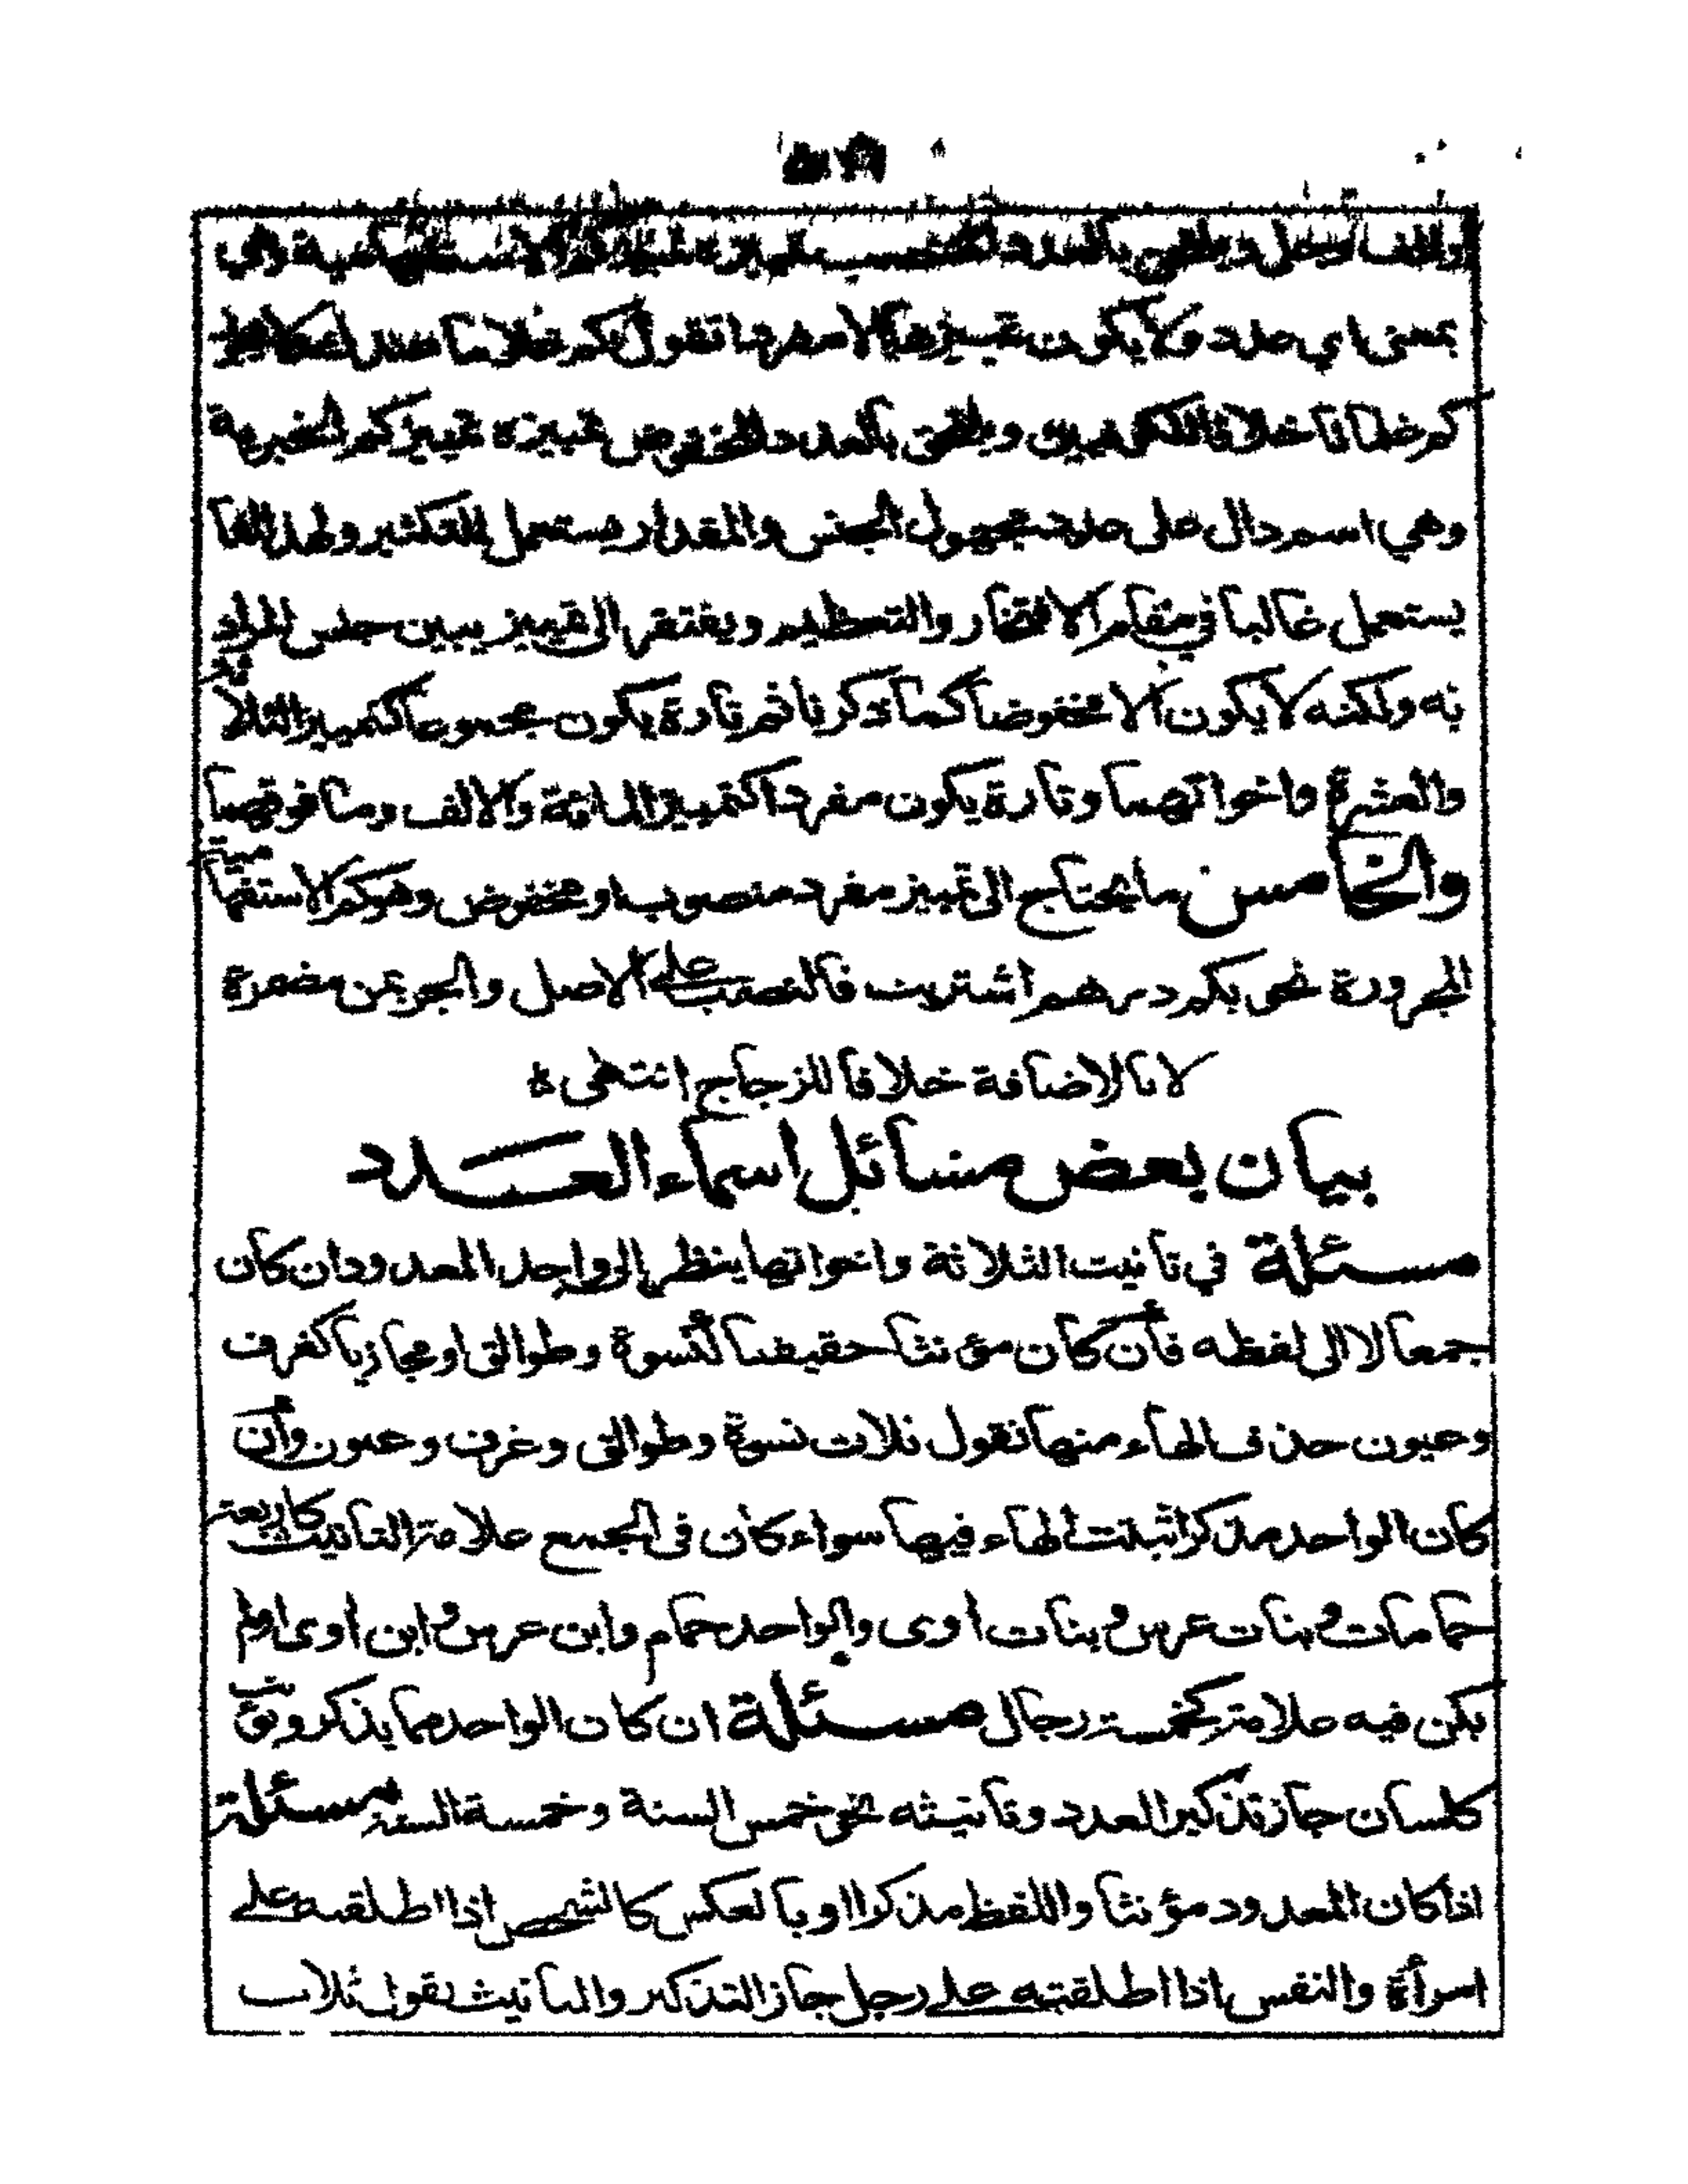 والف رجل ويلحق بالعدد المنتصب تمييزه تمييز كم الاستفهامية وهي
بمعنى اي عدد ولا يكون تمييزها الا مفردا تقول كم غلاما عندك
كم غلمانا خلافا للكوفيين ويلحق بالعدد المخفوض تمييزه تمييز كم الخبرية
وهي اسم دال على عدد مجهول الجنس والمقدار يستعمل للتكثير ولهذا انما
يستعمل غالبا في مقام الافتخار والتعظيم ويفتقر الى تمييز يبين جنس المراد
به ولكنه لا يكون الا مخفوضا كما ذكرنا ثم تارة يكون مجموعا كتمييز الثلاثة
والعشرة واخواتهما وتارة يكون مفردا كتمييز المائة والالف وما فوقهما
والخامس ما يحتاج الى تمييز مفرد منصوب او مخفوض وهو كم الاستفهامية
المجرورة نحو بكم درهم اشتريت فالنصب على الاصل والجر بمن مضمرة
لا بالاضافة خلافا للزجاج انتهى ه
بيان بعض مسائل اسماء العدد
مسئلة في تانيت الثلاثة واخواتها ينظر الى واحد المعدود ان كان
جمعا لا الى لفظه فأن كان مؤنثا حقيقيا كنسوة وطوالق او مجازيا كغرف
وعيون حذف الهاء منها تقول ثلاث نسوة وطوالق وغرف وعيون وأن
كان الواحد مذكرا ثبتت الهاء فيها سواء كان في الجمع علامة التانيث كاربعة
حمامات وبنات عرس وبنات اوى والواحد حمام وابن عرس وابن اوى اولم
يكن فيه علامة كخمسة رجال مسئلة ان كان الواحد مما يذكر ويؤنث
كلسان جاز تذكير العدد وتانيثه نحو خمس السنة وخمسة السنة مسئلة
اذا كان المعدود مؤنثا واللفظ مذكرا او بالعكس كالشخص اذا اطلقته على
امرأة والنفس اذا اطلقته على رجل جاز التذكير والتانيث تقول ثلاث